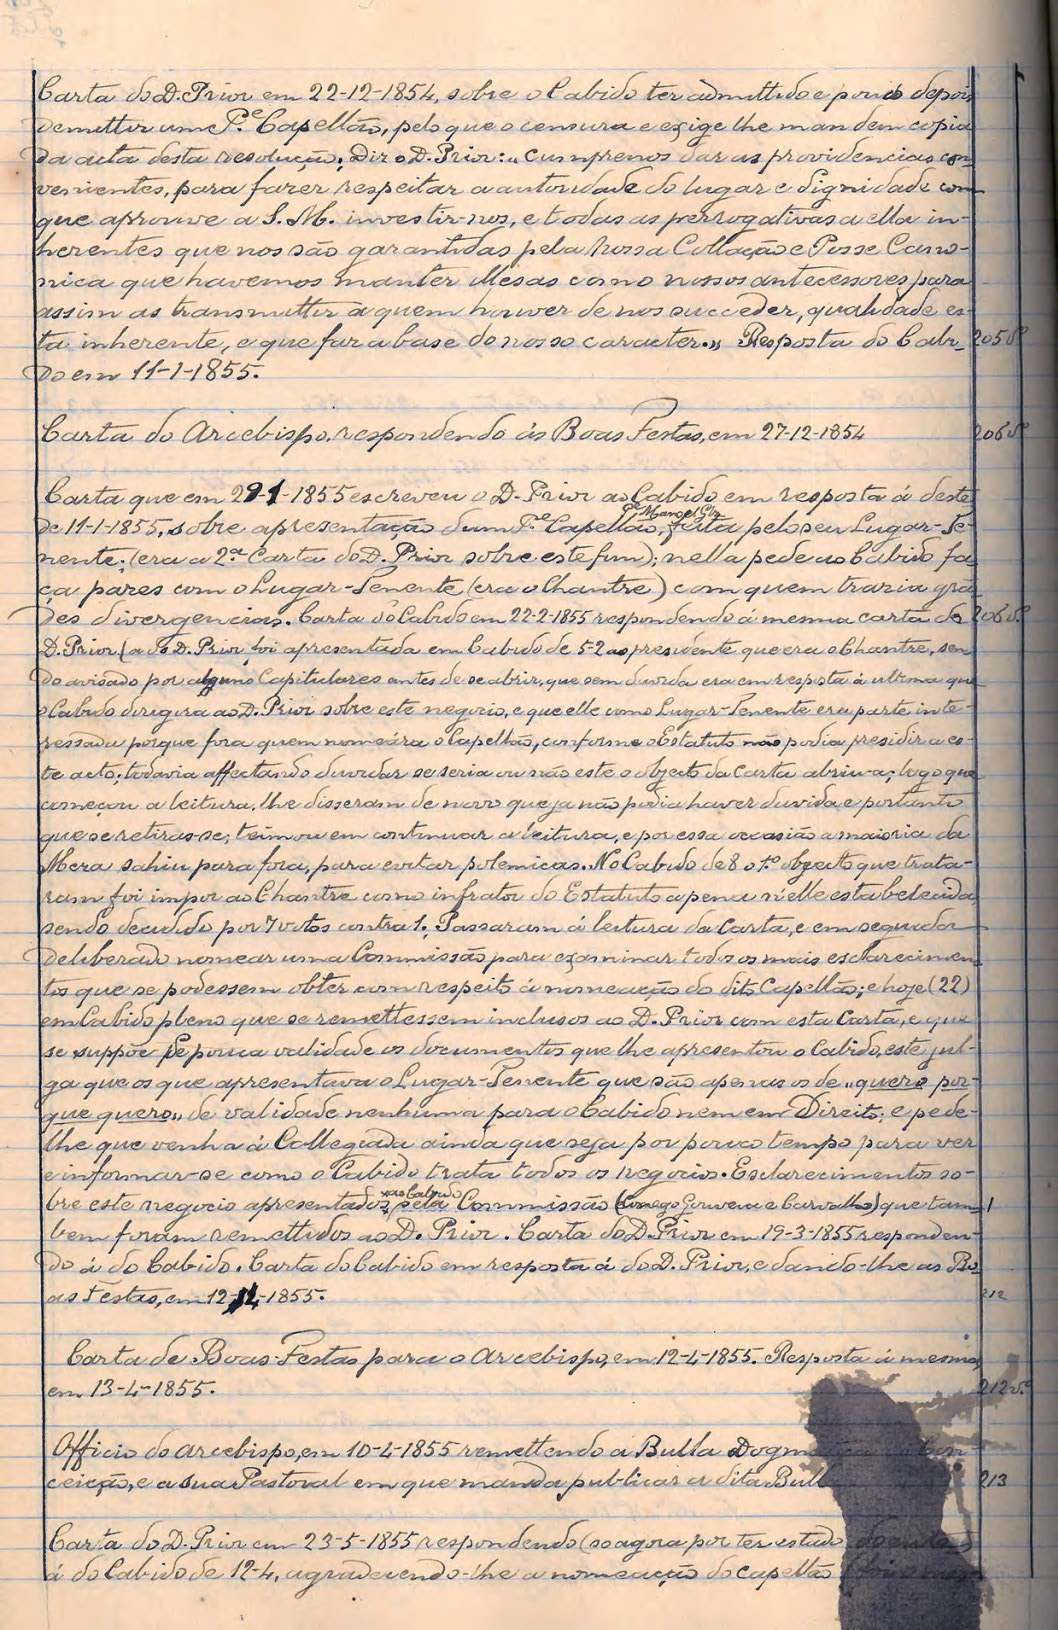 Carta do D. Prior em 22-12-1854, sobre o Cabido ter admittido e pouco depois
demittir um P.e Capellão, pelo que o censura e exige lhe mandem copia
da acta desta resolução; Diz o D. Prior: „ cumprenos dar as providencias con-
venientes, para fazer respeitar a autoridade do lugar e dignidade com
que aprouve a S. M. investir-nos, e todas as perrogativas a ella in-
herentes que nos são garantidas pela Nossa Collação e Posse Cano-
nica que havemos manter illesas como nossos antecessores para
assim as transmittir a quem houver de nos succeder, qualidade es-
ta inherente, e que faz a base do nosso caracter. „ Resposta do Cabi- 205 v.º
do em 11-1-1855.
Carta do Arcebispo, respondendo ás Boas Festas, em 27-12-1854 206 v.º
Carta que em 29-1-1855 escreveu o D. Prior ao Cabido em resposta á deste
de 11-1-1855, sobre apresentação dum P.e Capellão, P.e Manoel feita pelo seu Lugar-Te-
nente; (era a 2.ª Carta do D. Prior sobre este fim); nella pede ao Cabido fa-
ça pazes com o Lugar-Tenente (era o Chantre) com quem trazia gran-
des divergencias. Carta do Cabido em 22-2-1855 respondendo á mesma carta do 206 v.º
D. Prior (a do D. Prior foi apresentada em Cabido de 5-2 ao presidente que era o Chantre, sen-
do avisado por alguns Capitulares antes de se abrir, que sem duvida era em resposta á ultima que
o Cabido dirigira ao D. Prior sobre este negocio, e que elle como Lugar-Tenente era parte inte-
ressada porque fora quem nomeára o Capellão, conforme o Estatuto não podia presidir a es-
te acto; todavia affectando duvidar se seria ou não este o objecto da Carta abriu-a; logo que
começou a leitura, lhe disseram de novo que ja não podia haver duvida e portanto
que se retiras-se; teimou em continuar a leitura, e por essa occasião a maioria da
Meza sahiu para fora, para evitar polemicas. No Cabido de 8 o 1.º objecto que trata-
ram foi impor ao Chantre como infrator do Estatuto a pena n'elle estabelecida
sendo decidido por 7 votos contra 1. Passaram á leitura da Carta, e em seguida
deliberado nomear uma Commissão para examinar todos os mais esclarecimen-
tos que se podessem obter com respeito á nomeação do dito Capellão; e hoje (22)
em Cabido pleno que se remettessem inclusos ao D. Prior com esta Carta, e que
se suppõe de pouca validade os documentos que lhe apresentou o Cabido, este jul-
ga que os que apresentava o Lugar-Tenente que são apenas os de „quero por-
que quero„ de validade nenhuma para o Cabido nem em Direito; e pede-
lhe que venha á Collegiada ainda que seja por pouco tempo para ver
e informar-se como o Cabido trata todos os negocios. Esclarecimentos so-
bre este negocio apresentados, ao Cabido pela Commissão (Conego Gouveia e Carvalho) que tam-
bem foram remettidos ao D. Prior. Carta do D. Prior em 19-3-1855 responden-
do á do Cabido. Carta do Cabido em resposta á do D. Prior, e dando-lhe as Bo-
as Festas, em 12-4-1855. 212
Carta de Boas-Festas para o Arcebispo, em 12-4-1855. Resposta á mesma,
em 13-4-1855. 212 v.º
Officio do Arcebispo, em 10-4-1855 remettendo a Bulla Dogmatica Con-
ceição, e a sua Pastoral em que manda publicar a dita Bulla 213
Carta do D. Prior em 23-5-1855 respondendo (so agora por ter estado doente)
á do Cabido de 12-4, agradecendo-lhe a nomeação do capellão